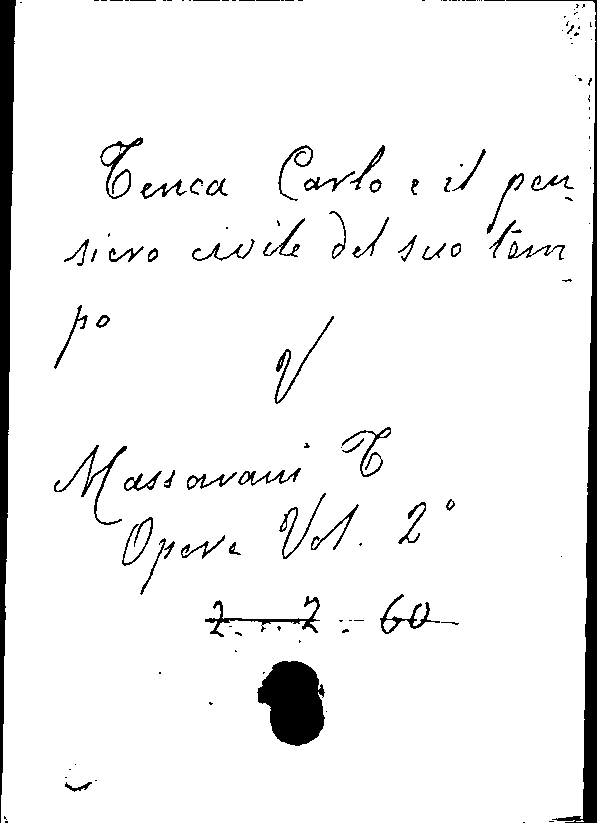 Tenca Carlo e il pen-
siero civile del suo tem-
po
V
Massarani T
Opere Vol. 2°
2 - 2 - 60